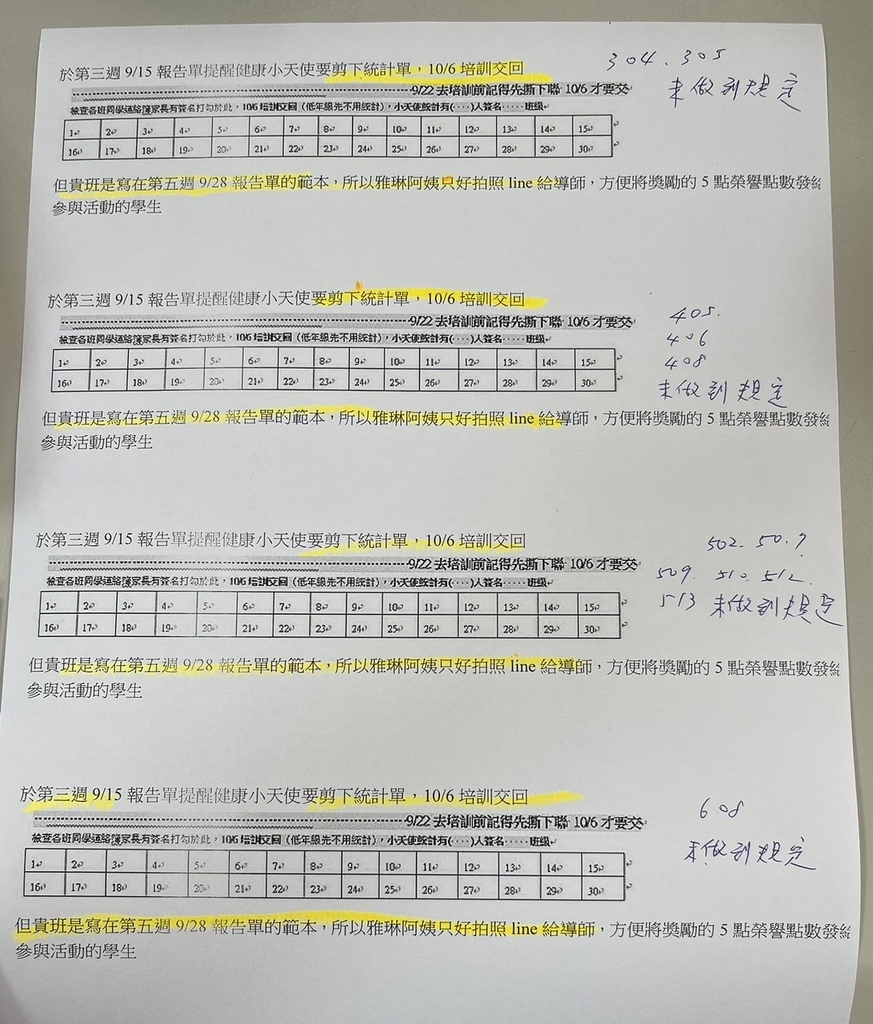 於第三週 9/15 報告單提醒健康小天使要剪下統計單，10/6 培訓交回
304、305
未做到規定
9/22 去培訓前記得先撕下聯 10/6 才要交
檢查各班同學連絡簿家長有簽名打勾於此，10/6 培訓交回（低年級先不用統計），小天使統計有(‧‧‧‧)人簽名‧‧‧‧‧班級
1 2 3 4 5 6 7 8 9 10 11 12 13 14 15
16 17 18 19 20 21 22 23 24 25 26 27 28 29 30
但貴班是寫在第五週 9/28 報告單的範本，所以雅琳阿姨只好拍照 line 給導師，方便將獎勵的 5 點榮譽點數發給
參與活動的學生
於第三週 9/15 報告單提醒健康小天使要剪下統計單，10/6 培訓交回
405.
406
408
未做到規定
9/22 去培訓前記得先撕下聯 10/6 才要交
檢查各班同學連絡簿家長有簽名打勾於此，10/6 培訓交回（低年級先不用統計），小天使統計有(‧‧‧‧)人簽名‧‧‧‧‧班級
1 2 3 4 5 6 7 8 9 10 11 12 13 14 15
16 17 18 19 20 21 22 23 24 25 26 27 28 29 30
但貴班是寫在第五週 9/28 報告單的範本，所以雅琳阿姨只好拍照 line 給導師，方便將獎勵的 5 點榮譽點數發給
參與活動的學生
於第三週 9/15 報告單提醒健康小天使要剪下統計單，10/6 培訓交回
502. 50.7
509. 510. 512.
513 未做到規定
9/22 去培訓前記得先撕下聯 10/6 才要交
檢查各班同學連絡簿家長有簽名打勾於此，10/6 培訓交回（低年級先不用統計），小天使統計有(‧‧‧‧)人簽名‧‧‧‧‧班級
1 2 3 4 5 6 7 8 9 10 11 12 13 14 15
16 17 18 19 20 21 22 23 24 25 26 27 28 29 30
但貴班是寫在第五週 9/28 報告單的範本，所以雅琳阿姨只好拍照 line 給導師，方便將獎勵的 5 點榮譽點數發給
參與活動的學生
於第三週 9/15 報告單提醒健康小天使要剪下統計單，10/6 培訓交回
608
未做到規定
9/22 去培訓前記得先撕下聯 10/6 才要交
檢查各班同學連絡簿家長有簽名打勾於此，10/6 培訓交回（低年級先不用統計），小天使統計有(‧‧‧‧)人簽名‧‧‧‧‧班級
1 2 3 4 5 6 7 8 9 10 11 12 13 14 15
16 17 18 19 20 21 22 23 24 25 26 27 28 29 30
但貴班是寫在第五週 9/28 報告單的範本，所以雅琳阿姨只好拍照 line 給導師，方便將獎勵的 5 點榮譽點數發給
參與活動的學生